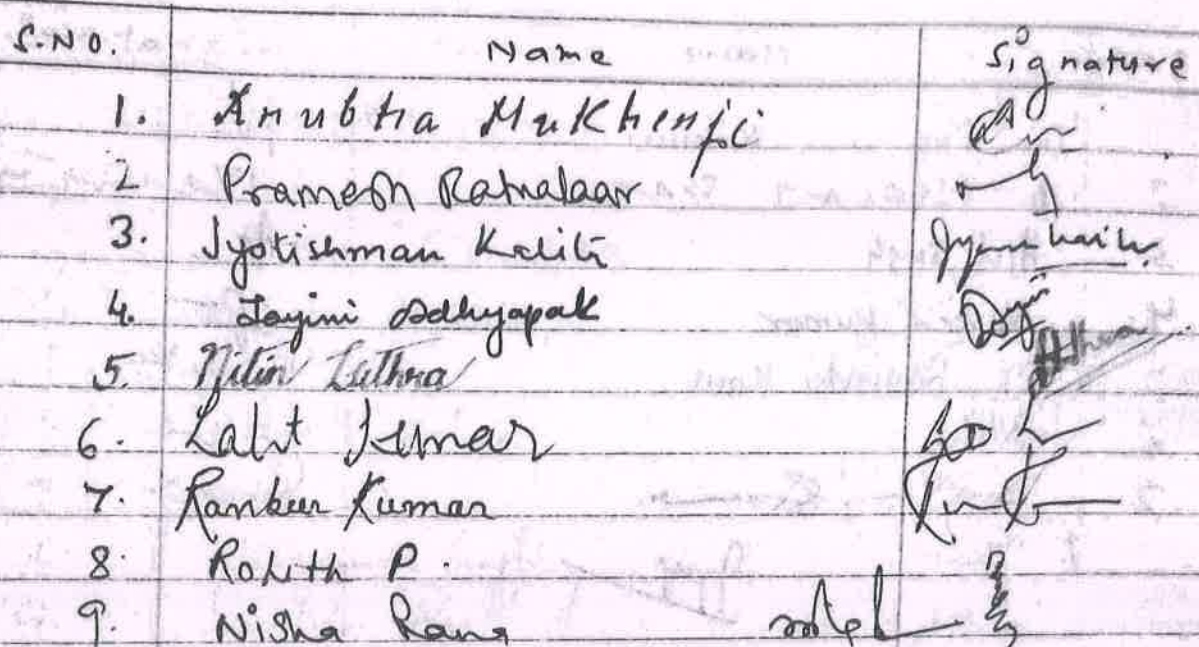 S.NO. Name Signature
1. Anubha Mukherji
2 Pramesh Ratnalaar
3. Jyotishman Kaliti
4. Jayini Adhyapak
5. Nitin Luthra
6. Lalit Kumar
7. Ranbeer Kumar
8. Rohith P.
9. Nisha Rana